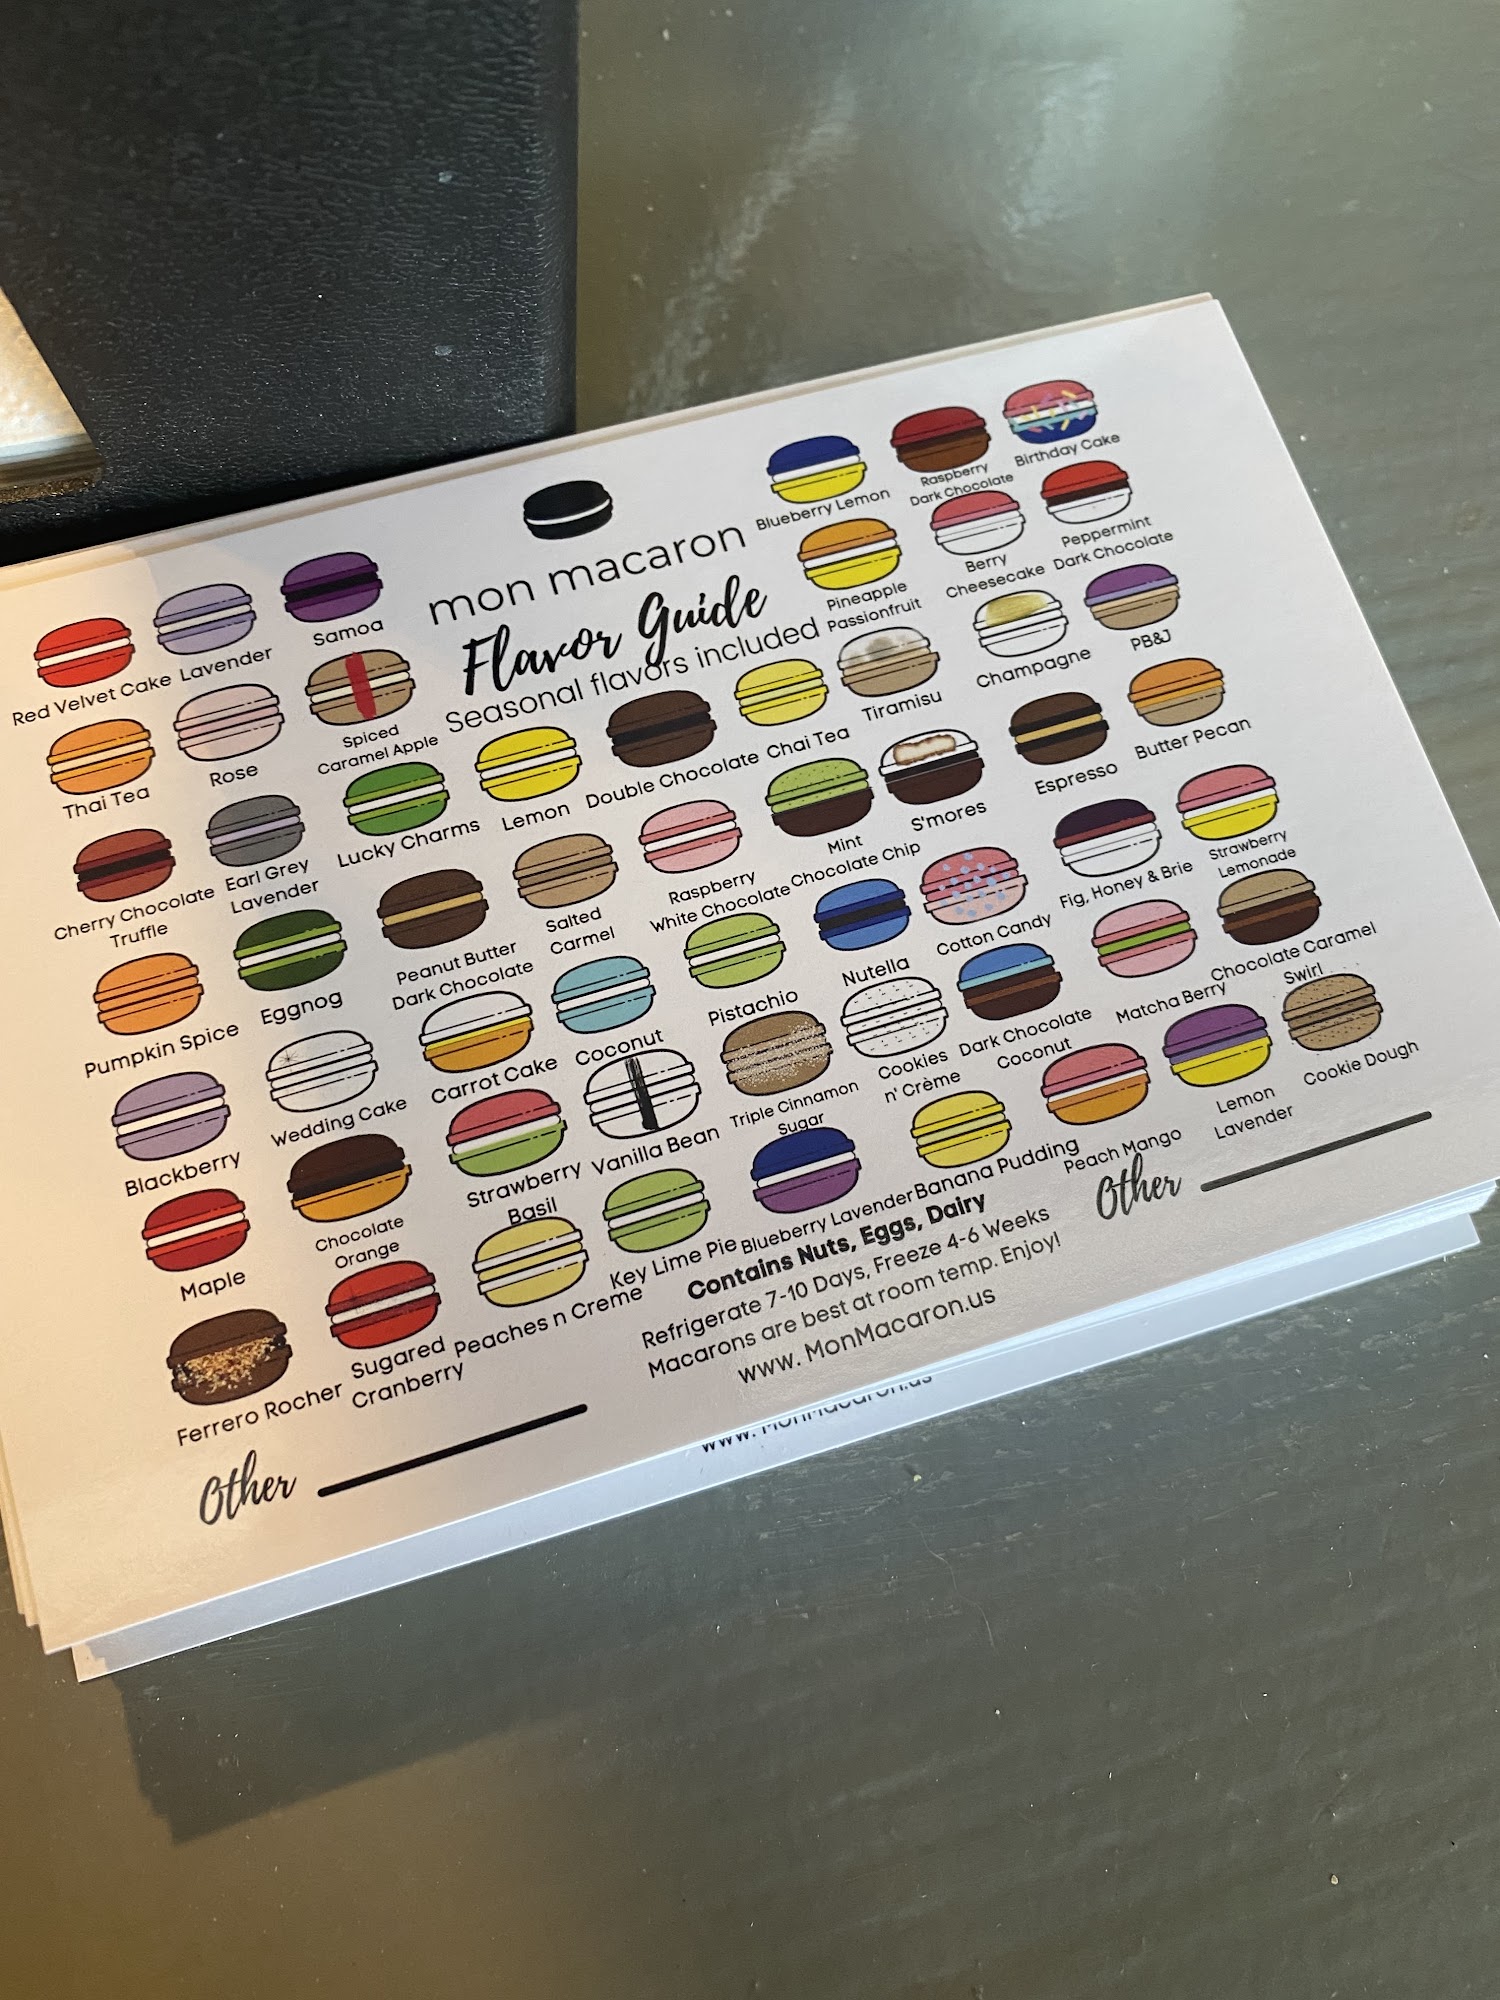 mon macaron
Flavor Guide
Seasonal flavors included
Red Velvet Cake
Lavender
Samoa
Thai Tea
Rose
Spiced
Caramel Apple
Cherry Chocolate
Truffle
Earl Grey
Lavender
Lucky Charms
Lemon
Double Chocolate
Chai Tea
Tiramisu
Champagne
PB&J
Blueberry Lemon
Raspberry
Dark Chocolate
Birthday Cake
Pineapple
Passionfruit
Berry
Cheesecake
Peppermint
Dark Chocolate
Pumpkin Spice
Eggnog
Peanut Butter
Dark Chocolate
Salted
Carmel
Raspberry
White Chocolate
Mint
Chocolate Chip
S'mores
Espresso
Butter Pecan
Blackberry
Wedding Cake
Carrot Cake
Coconut
Pistachio
Nutella
Cotton Candy
Fig, Honey & Brie
Strawberry
Lemonade
Maple
Chocolate
Orange
Strawberry
Basil
Vanilla Bean
Triple Cinnamon
Sugar
Cookies
n' Crème
Dark Chocolate
Coconut
Matcha Berry
Chocolate Caramel
Swirl
Ferrero Rocher
Sugared
Cranberry
Peaches n Creme
Key Lime Pie
Blueberry Lavender
Banana Pudding
Peach Mango
Lemon
Lavender
Cookie Dough
Other
Other
Contains Nuts, Eggs, Dairy
Refrigerate 7-10 Days, Freeze 4-6 Weeks
Macarons are best at room temp. Enjoy!
www. MonMacaron.us
www. MonMacaron.us